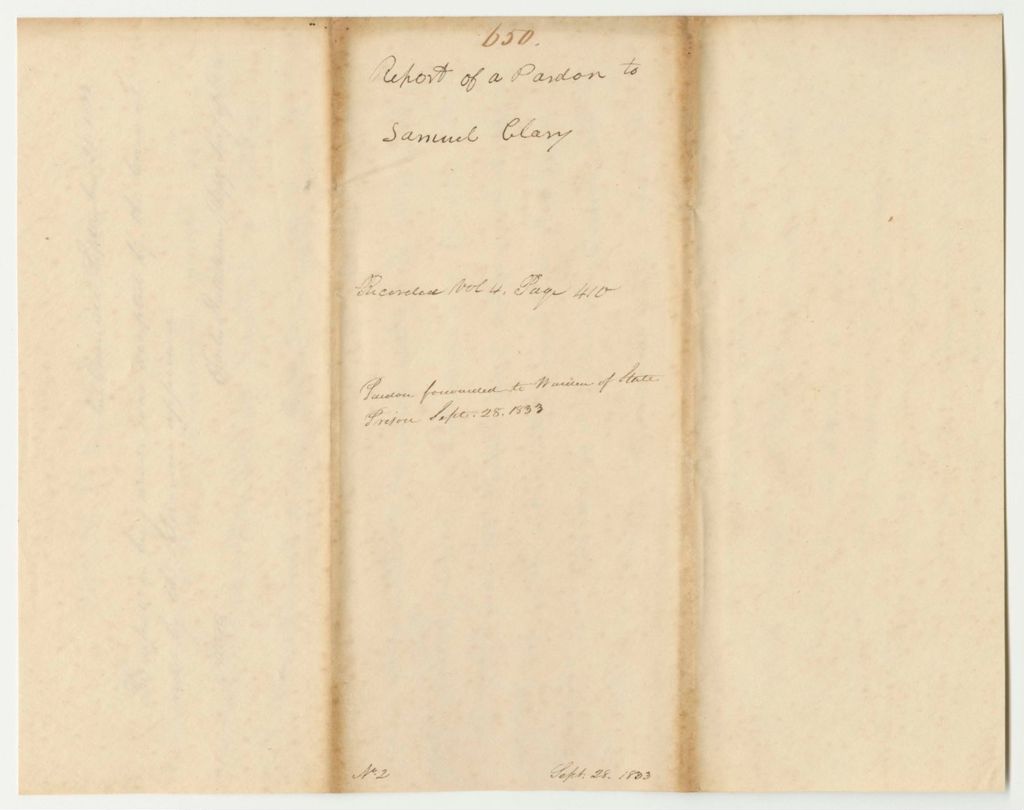 650.
Report of a Pardon to
Samuel Clary
Recorded Vol 4. Page 410
Pardon forwarded to Warden of State
Prison Sept. 28. 1833
No 2
Sept. 28. 1833